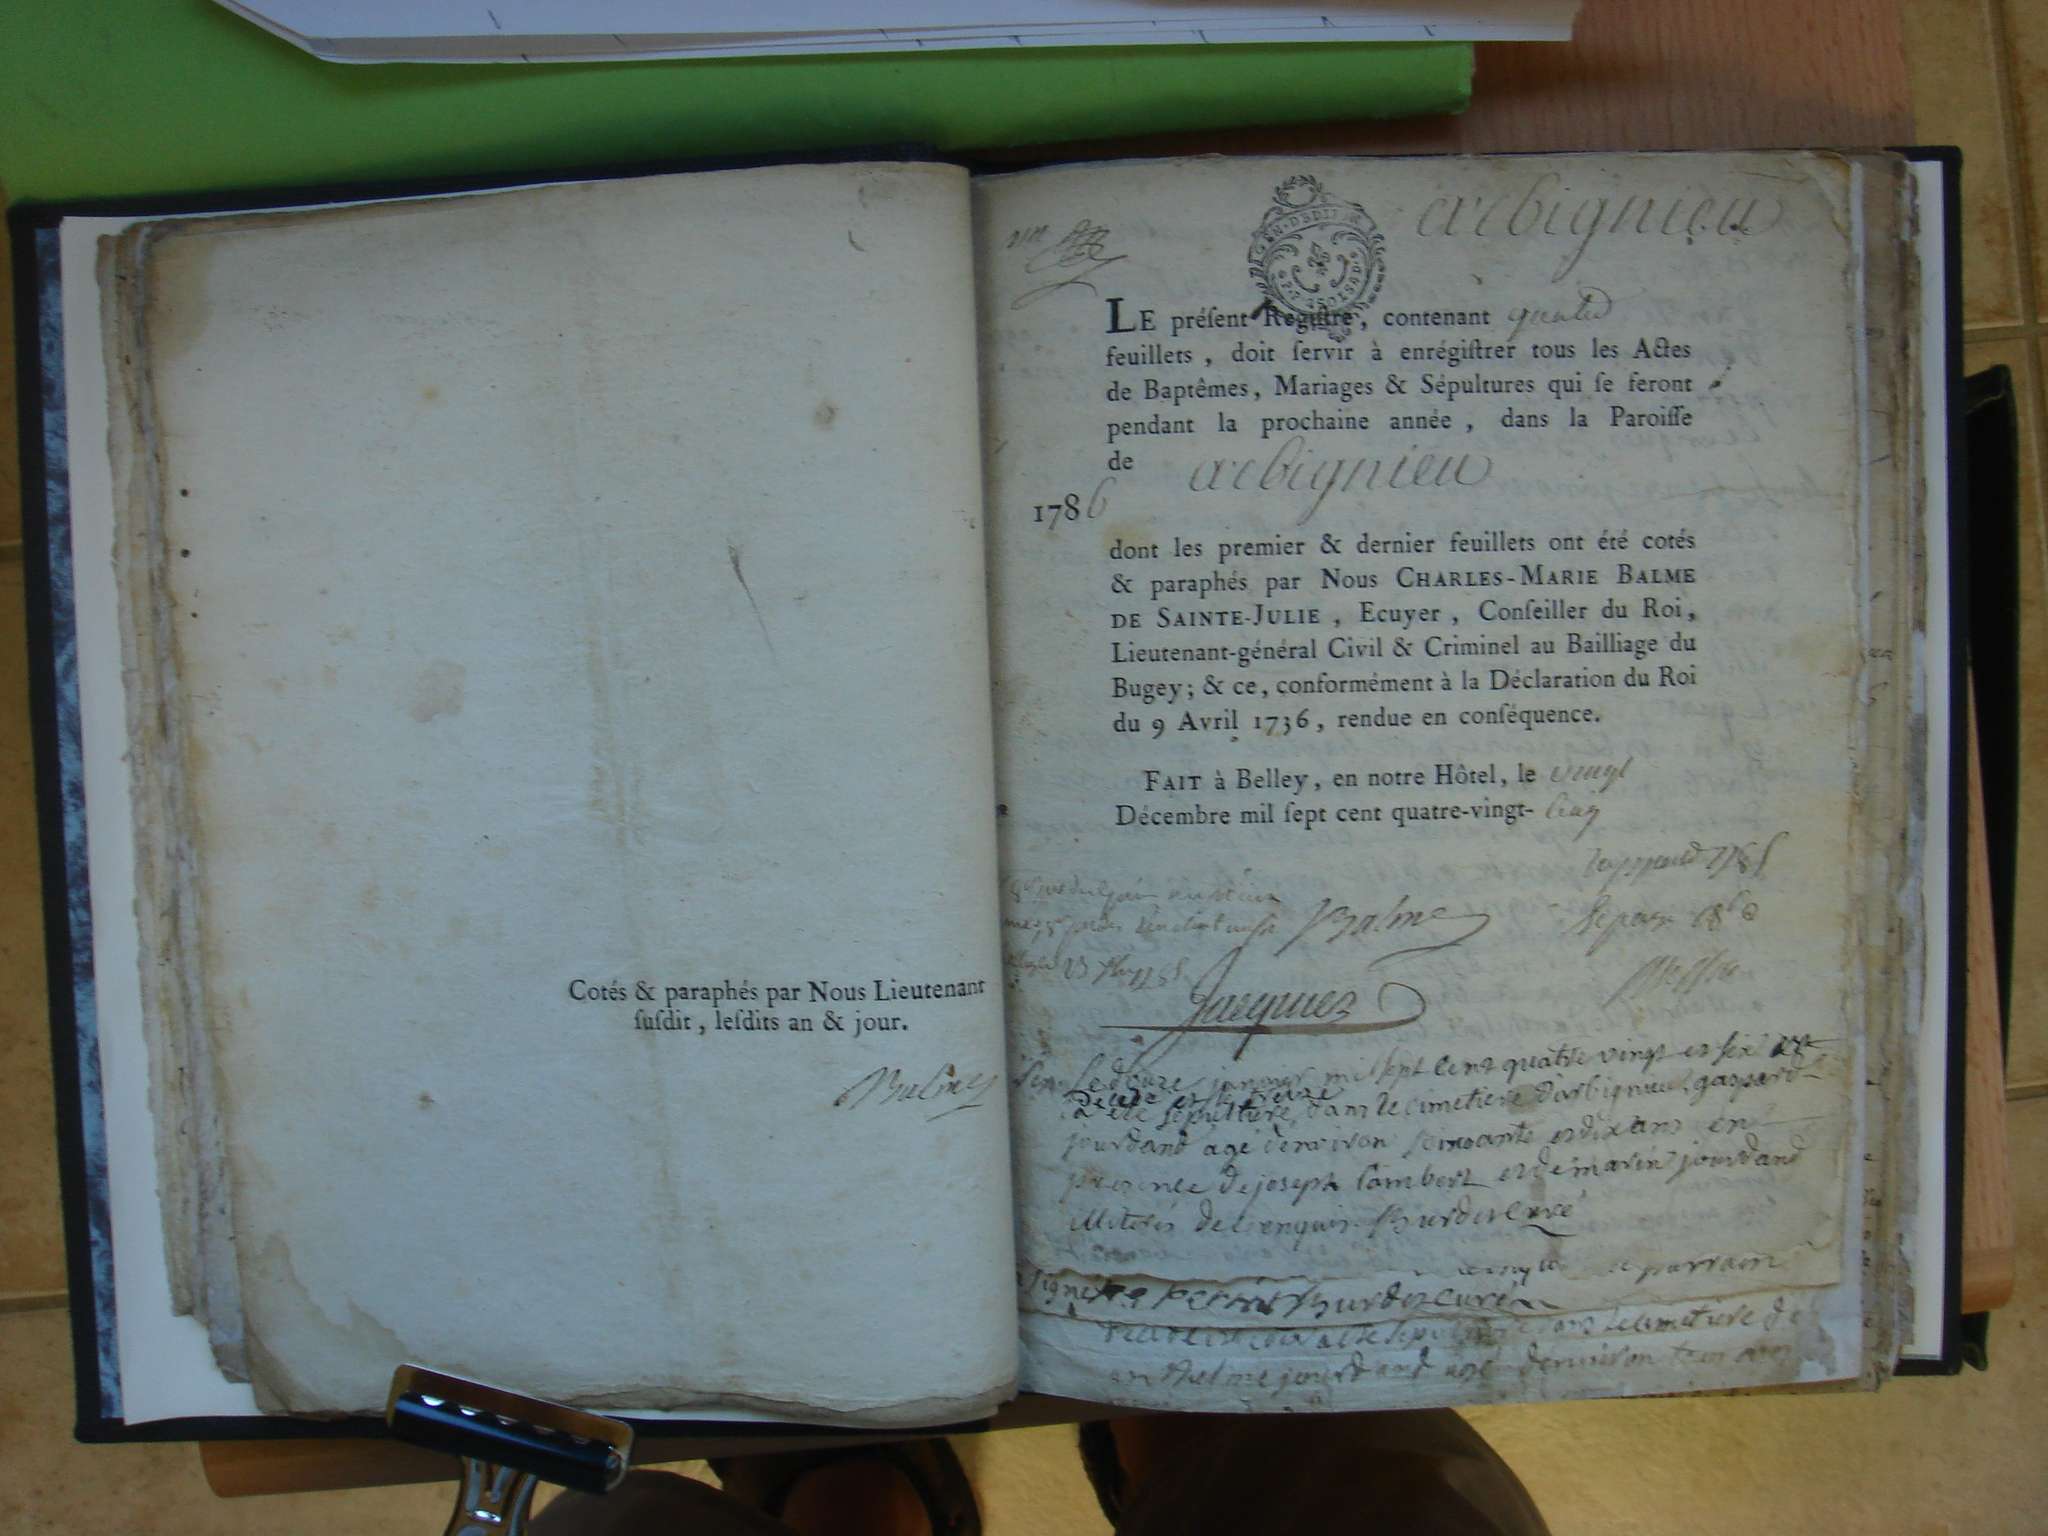 Cotés & paraphés par Nous Lieutenant
ſuſdit, leſdits an & jour.
Balme
arbignieu
LE préſent Regiſtre, contenant
feuillets, doit ſervir à enrégiſtrer tous les Actes
de Baptêmes, Mariages & Sépultures qui ſe feront
pendant la prochaine année, dans la Paroiſſe
de arbignieu
1786
dont les premier & dernier feuillets ont été cotés
& paraphés par Nous CHARLES-MARIE BALME
DE SAINTE-JULIE, Ecuyer, Conſeiller du Roi,
Lieutenant-général Civil & Criminel au Bailliage du
Bugey; & ce, conformément à la Déclaration du Roi
du 9 Avril 1736, rendue en conſéquence.
FAIT à Belley, en notre Hôtel, le vingt
Décembre mil ſept cent quatre-vingt- cinq
Balme
Jacques
Le douze janvier mil sept cent quatre vingt et six
a été sepulturé dans le cimetiere d'arbignieu gaspard
jourdand agé d'environ et dix ans en
presence de joseph Lambert et de marin jourdand
illiterés de ce enquis Burdet curé
parrain
signé Burdet curé
dans le cimetiere de
anthelme jourdand agé d'environ ans